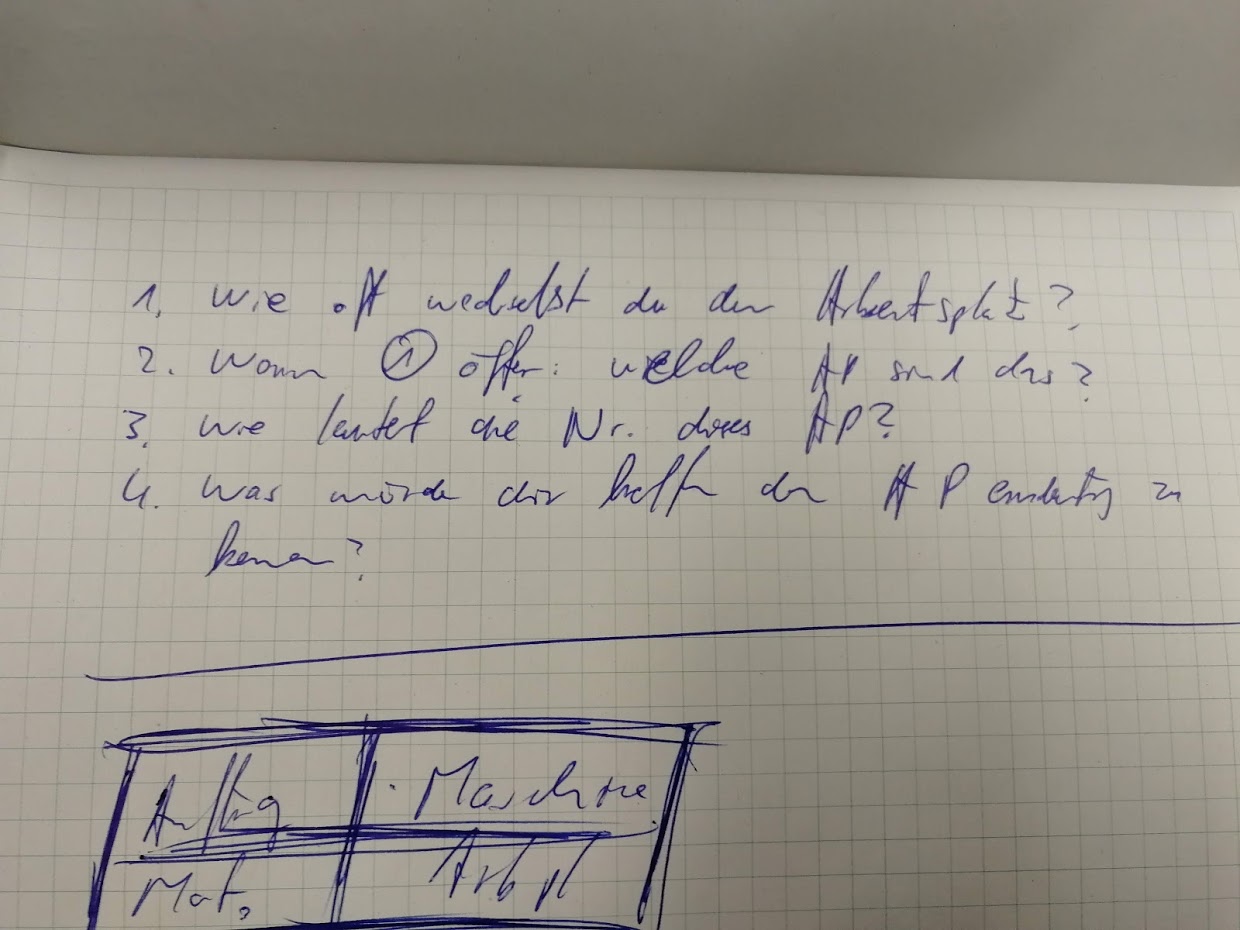 1. Wie oft wechselst du den Arbeitsplatz?
2. Wenn ① öfter: welche AP sind das?
3. Wie lautet die Nr. dieses AP?
4. Was würde dir helfen den AP eindeutig zu
kennen?
Auftrag Maschine
Mat. Arbpl